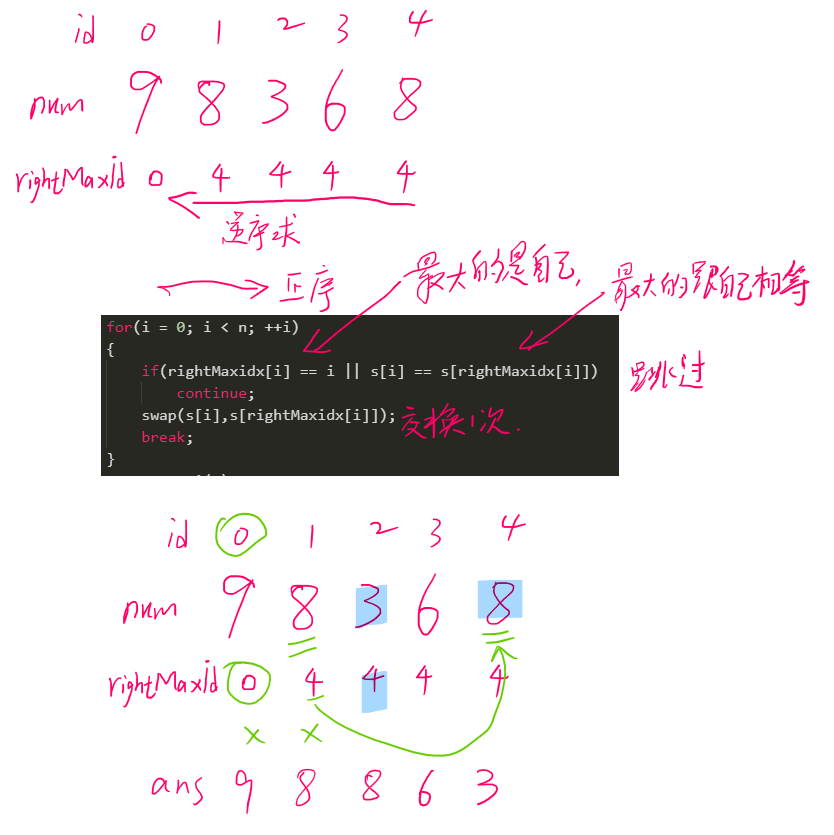 id 0 1 2 3 4
num 9 8 3 6 8
rightMaxId 0 4 4 4 4
逆序求
正序
最大的是自己,
最大的跟自己相等
for(i = 0; i < n; ++i)
{
if(rightMaxidx[i] == i || s[i] == s[rightMaxidx[i]])
跳过
continue;
swap(s[i],s[rightMaxidx[i]]);
交换1次.
break;
}
id 0 1 2 3 4
num 9 8 3 6 8
rightMaxId 0 4 4 4 4
× ×
ans 9 8 8 6 3